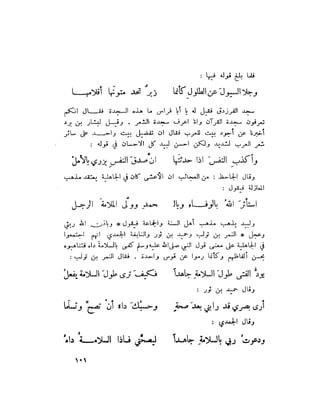 فلما بلغ قوله فيها :
وجلا السيول عن الطلول كأنها زبر تجد متونها أقلامها
سجد الفرزدق فقيل له يا أبا فراس ما هذه السجدة فقال انكم
تعرفون سجدة القرآن وانا اعرف سجدة الشعر . وقيل لبشار بن برد
أخبرنا عن أجود بيت للعرب فقال ان تفضيل بيت واحد على سائر
شعر العرب لشديد ولكن احسن لبيد كل الاحسان في قوله :
وأكذب النفس اذا حدثتها ان صدق النفس يزري بالأمل
وقال الجاحظ : من العجائب ان الأعشى كان في الجاهلية يعتقد مذهب
المعتزلة فيقول :
استأثر الله بالوفاء وبالـ حمد وولى الملامة الرجل
ولبيد يذهب مذهب أهل السنة والجماعة فيقول * وباذن الله ريثي
وعجل * النمر بن تولب وحميد بن ثور والنابغة الجعدي انهم اجتمعوا
في الجاهلية على معنى قول النبي صلى الله عليه وسلم كفى بالسلامة داء فتناهبوه
بحسن ألفاظهم وكأنما رموا عن قوس واحدة . فقال النمر بن تولب :
يود الفتى طول السلامة جاهداً فكيف ترى طول السلامة يفعل
وقال حميد بن ثور :
أرى بصري قد رابني بعد صحة وحسبك داء أن تصح وتسلما
وقال الجعدي :
ودعوت ربي بالسلامة جاهداً ليصحني فاذا السلامة داء
١٥١